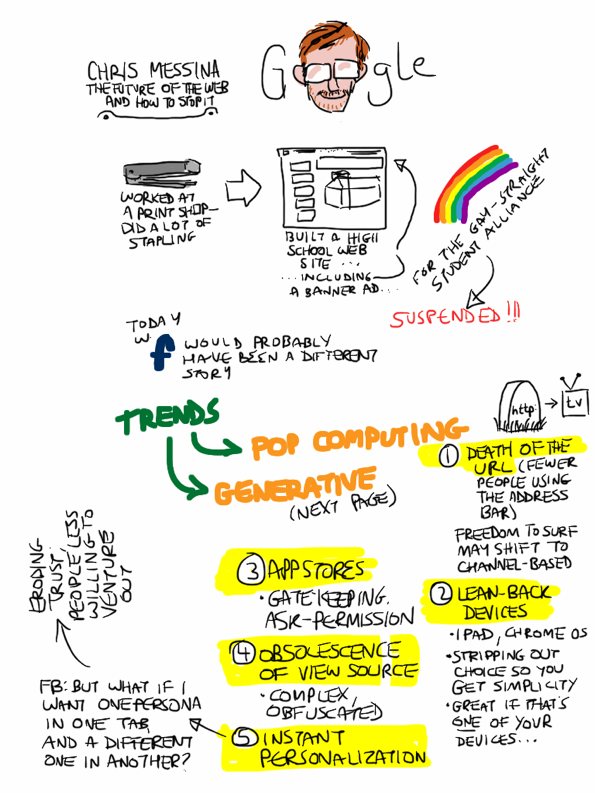 CHRIS MESSINA
THE FUTURE OF THE WEB
AND HOW TO STOP IT
Google
WORKED AT
A PRINT SHOP-
DID A LOT OF
STAPLING
BUILT A HIGH
SCHOOL WEB
SITE ...
... INCLUDING
A BANNER AD...
FOR THE GAY-STRAIGHT
STUDENT ALLIANCE
SUSPENDED!!!
TODAY
W. f WOULD PROBABLY
HAVE BEEN A DIFFERENT
STORY
TRENDS
POP COMPUTING
GENERATIVE
(NEXT PAGE)
http:
tv
① DEATH OF THE
URL (FEWER
PEOPLE USING
THE ADDRESS
BAR)
FREEDOM TO SURF
MAY SHIFT TO
CHANNEL-BASED
② LEAN-BACK
DEVICES
• IPAD, CHROME OS
• STRIPPING OUT
CHOICE SO YOU
GET SIMPLICITY
• GREAT IF THAT'S
ONE OF YOUR
DEVICES...
③ APP STORES
• GATEKEEPING.
ASK-PERMISSION
④ OBSOLESCENCE
OF VIEW SOURCE
• COMPLEX,
OBFUSCATED
⑤ INSTANT
PERSONALIZATION
FB: BUT WHAT IF I
WANT ONE PERSONA
IN ONE TAB,
AND A DIFFERENT
ONE IN ANOTHER?
ERODING
TRUST:
PEOPLE LESS
WILLING TO
VENTURE
OUT